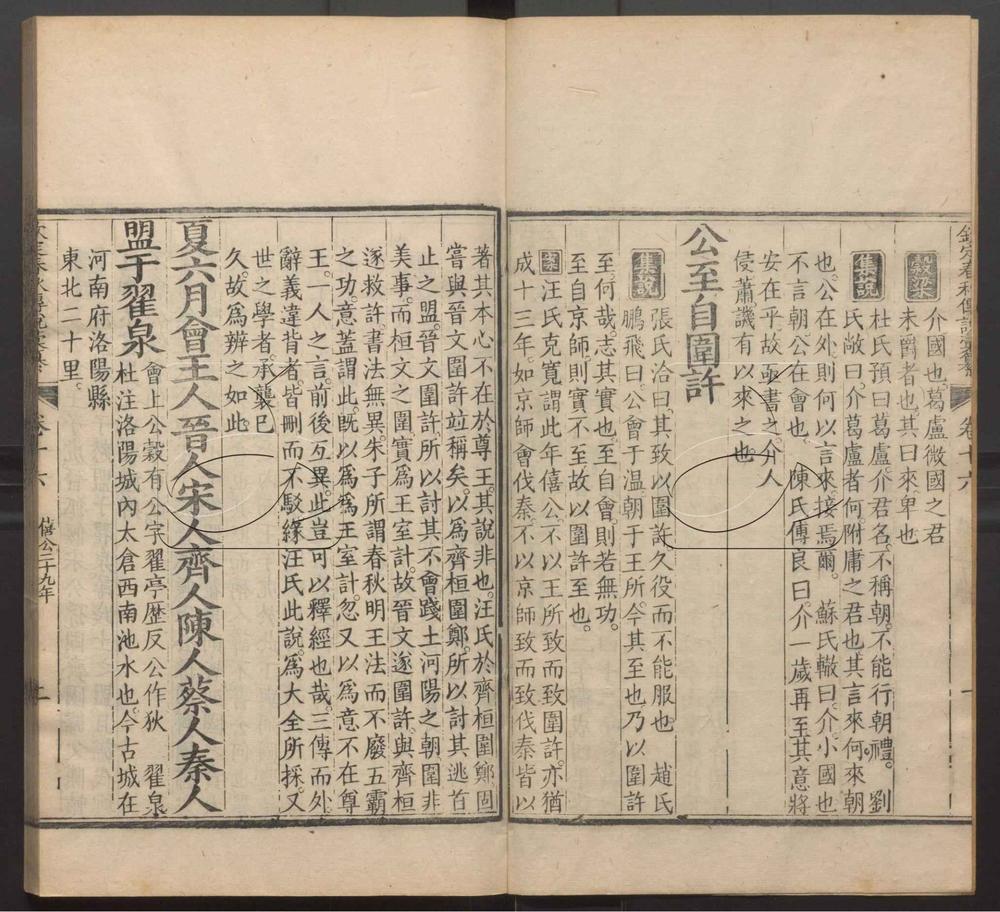 欽定春秋傳說彙纂 卷十六
穀梁 介國也葛盧微國之君
未爵者也其曰來卑也
集說 杜氏預曰葛盧介君名不稱朝不能行朝禮。 劉
氏敞曰介葛盧者何附庸之君也其言來何來朝
也。公在外則何以言來接焉爾。 蘇氏轍曰介小國也
不言朝公在會也。 陳氏傅良曰介一歲再至其意將
安在乎。故亟書之介人
侵蕭譏有以來之也
公至自圍許
集說 張氏洽曰其致以圍許久役而不能服也 趙氏
鵬飛曰公會于溫朝于王所今其至也乃以圍許
至。何哉志其實也至自會則若無功。
至自京師則實不至故以圍許至也。
案 汪氏克寬謂此年僖公不以王所致而致圍許。亦猶
成十三年如京師會伐秦不以京師致而致伐秦皆以
著其本心不在於尊王其說非也汪氏於齊桓圍鄭固
嘗與晉文圍許竝稱矣。以為齊桓圍鄭。所以討其逃首
止之盟。晉文圍許。所以討其不會踐土河陽之朝圍非
美事。而桓文之圍實為王室計。故晉文遂圍許。與齊桓
遂救許。書法無異。朱子所謂春秋明王法而不廢五霸
之功。意蓋謂此。旣以為為王室計。忽又以為意不在尊
王。一人之言。前後互異。此豈可以釋經也哉。三傳而外。
辭義違背者。皆刪而不駁。緣汪氏此說。為大全所採。又
世之學者。承襲已
久。故為辨之如此
夏六月會王人晉人宋人齊人陳人蔡人秦人
盟于翟泉 會上公穀有公字翟亭歷反公作狄 翟泉
杜注洛陽城內太倉西南池水也。今古城在
河南府洛陽縣
東北二十里。
卷十六 僖公二十九年